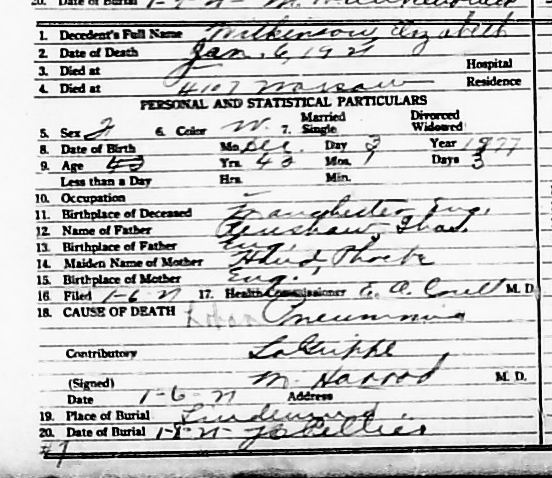 20. Date of Burial
1. Decedent's Full Name Wilkinson, Elizabeth
2. Date of Death Jan. 6, 1921
3. Died at Hospital
4. Died at 4107 Warsaw Residence
PERSONAL AND STATISTICAL PARTICULARS
5. Sex F 6. Color W. 7. Married Single Divorced Widowed
8. Date of Birth Mo. Dec. Day 3 Year 1877
9. Age 43 Yrs. 43 Mos. 1 Days 3
Less than a Day Hrs. Min.
10. Occupation
11. Birthplace of Deceased Manchester Eng.
12. Name of Father Renshaw, Thos.
13. Birthplace of Father Eng.
14. Maiden Name of Mother Phoebe
15. Birthplace of Mother Eng.
16. Filed 1-6-21 17. Health Commissioner E. A. M. D.
18. CAUSE OF DEATH Pneumonia
Contributory LaGrippe
(Signed) M. Harrod M. D.
Date 1-6-21 Address
19. Place of Burial Lindenwood
20. Date of Burial
#7